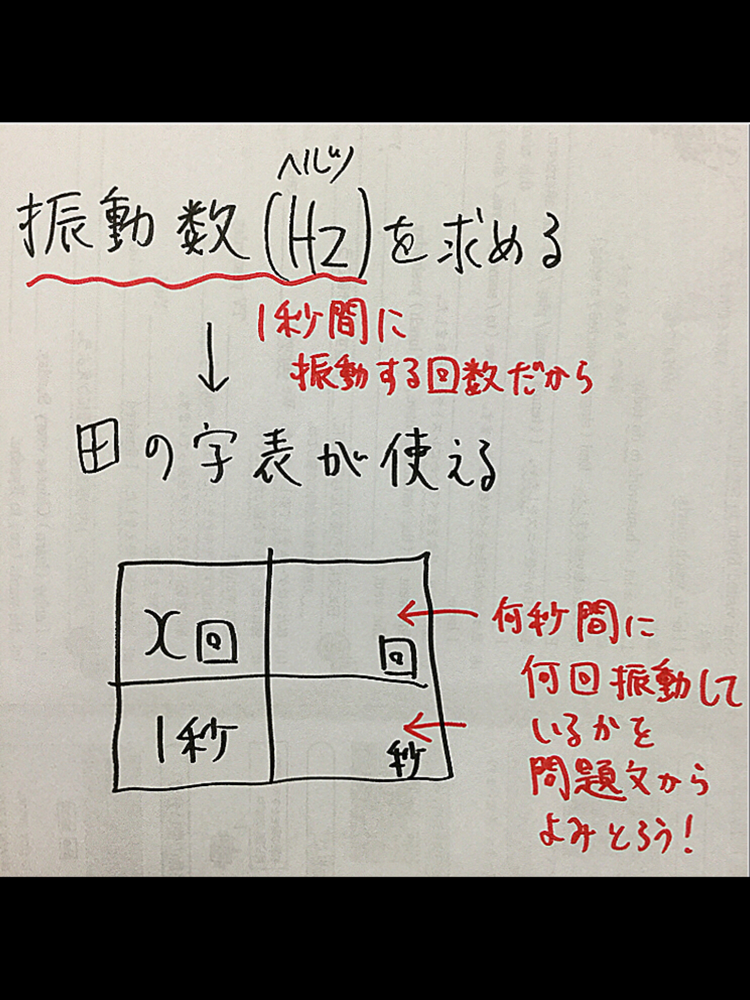 ヘルツ
振動数(Hz)を求める
1秒間に
振動する回数だから
↓
田の字表が使える
x回
回
1秒
秒
← 何秒間に
何回振動して
← いるかを
問題文から
よみとろう!